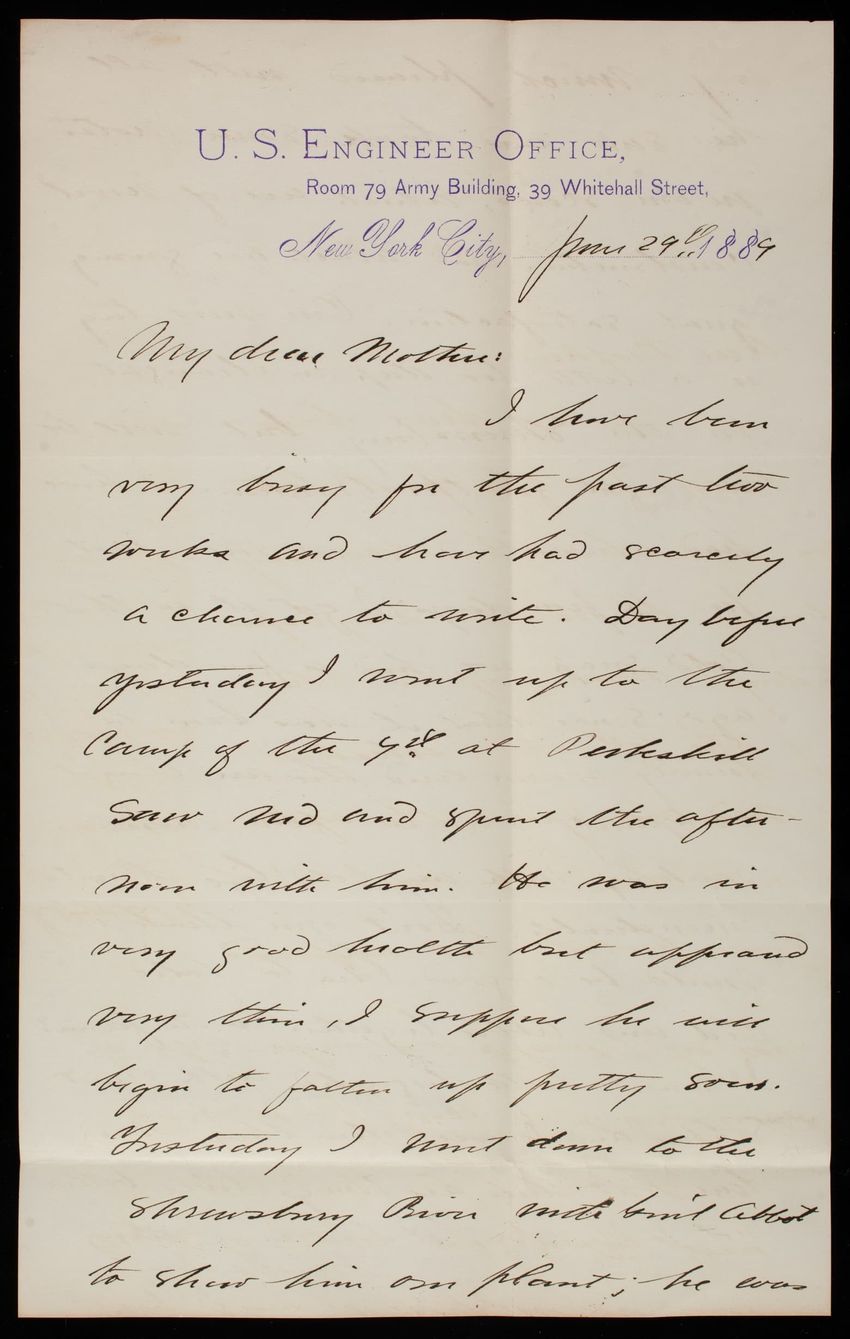 U. S. ENGINEER OFFICE,
Room 79 Army Building, 39 Whitehall Street,
New York City, June 29th 1889
My dear Mother:
I have been
very busy for the past two
weeks and have had scarcely
a chance to write. Day before
yesterday I went up to the
Camp of the 7th at Peekskill
Saw Ned and spent the after-
noon with him. He was in
very good health but appeared
very thin, I suppose he will
begin to fatten up pretty soon.
Yesterday I went down to the
Shrewsbury River with Gen'l Abbot
to show him our plant; he was